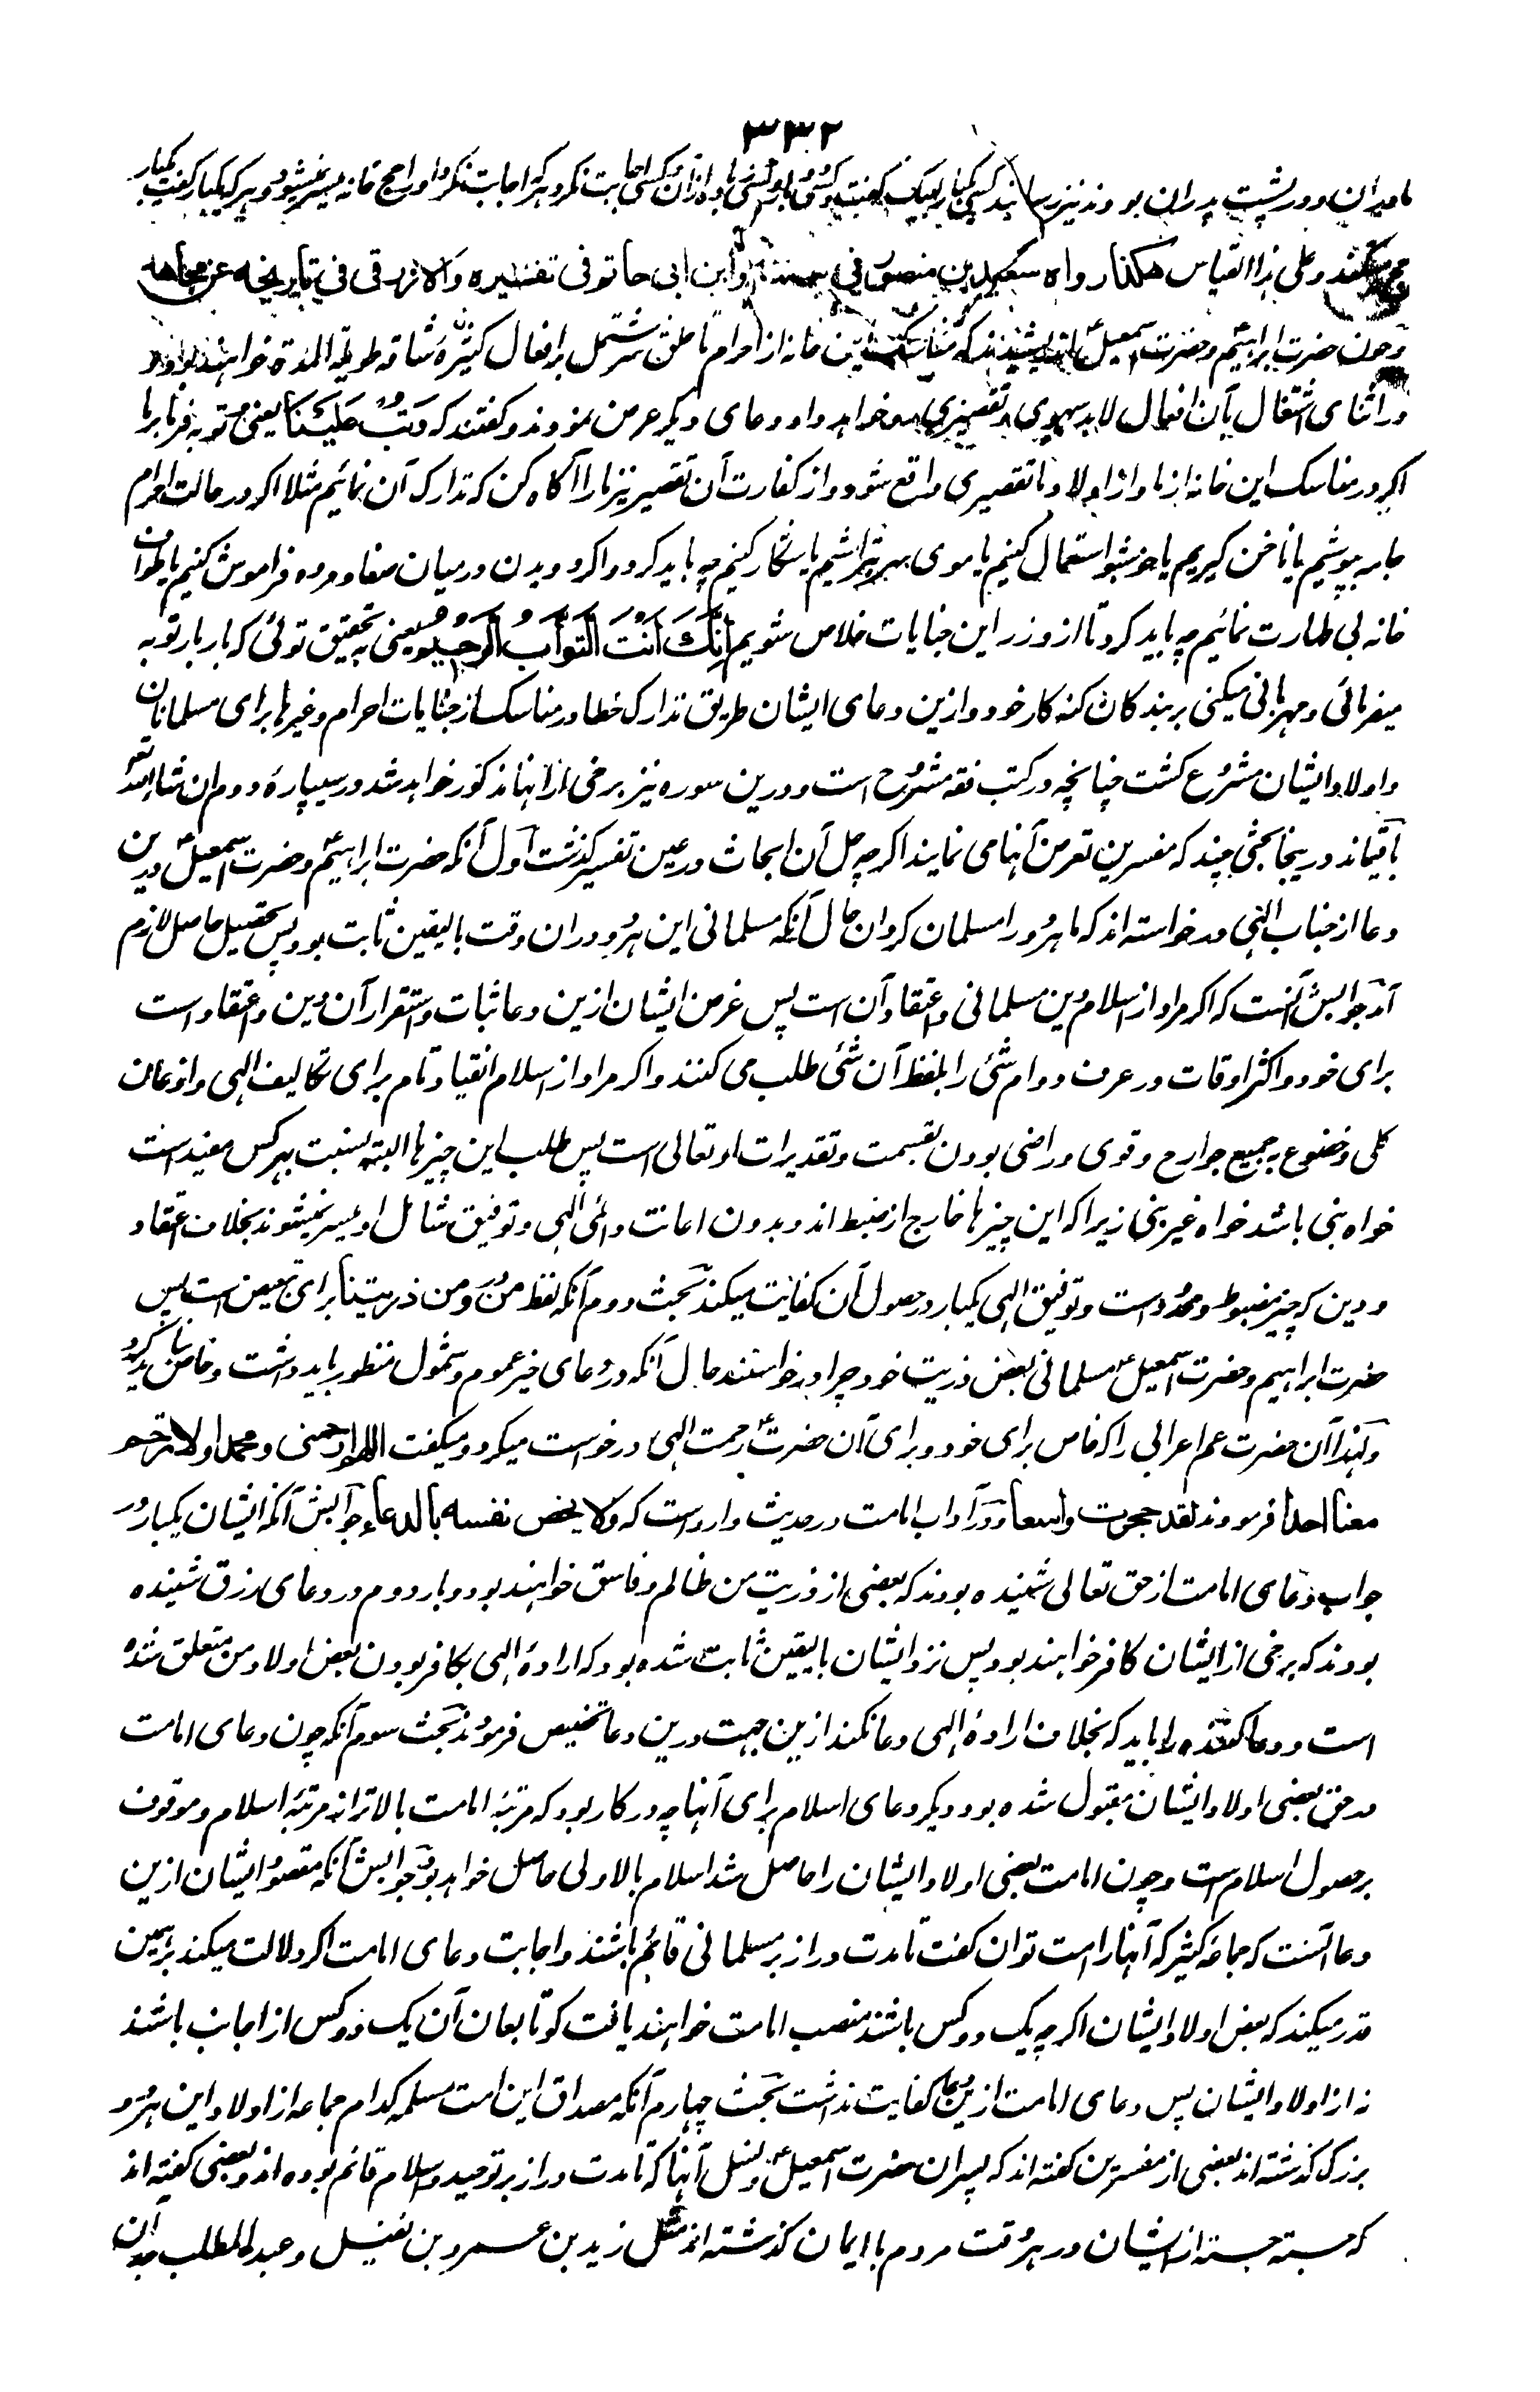 ۳۳۲
مادران و در پشت پدران بودند نیز رسانید کسیکه یکبار لبیک گفت و کسی دو بار و کسی زیاده ازان و کسی اجابت نکرد هر که اجابت نکرد او را حج خانه میسر نمیشود و هر که یکبار گفت یکبار
حج میکند و علی هذا القیاس هکذا رواه سعید بن منصور فی سننه وابن ابی حاتم فی تفسیره والازرقی فی تاریخه عن مجاهد
و چون حضرت ابراهیمؑ و حضرت اسمعیلؑ اندیشیدند که مناسک این خانه از احرام تا حلق سر مشتمل بر افعال کثیرهٔ شاقه طویلة المدة خواهند بود و
در اثنای اشتغال بآن افعال لابد سهوی و تقصیری رو خواهد داد و دعای دیگر عرض نمودند و گفتند که وَتُبْ عَلَيْنَا یعنی و توبه فرما بر ما
اگر در مناسک این خانه از ما و از اولاد ما تقصیری واقع شود و از کفارت آن تقصیر نیز ما را آگاه کن که تدارک آن نمائیم مثلا اگر در حالت احرام
جامه بپوشیم یا ناخن گیریم یا خوشبو استعمال کنیم یا موی سر بتراشیم یا شکار کنیم چه باید کرد و اگر دویدن درمیان صفا و مروه فراموش کنیم یا طواف
خانه بی طهارت نمائیم چه باید کرد تا از وزر این جنایات خلاص شویم اِنَّكَ اَنْتَ التَّوَّابُ الرَّحِيْمُ یعنی به تحقیق توئی که بار بار توبه
میفرمائی و مهربانی میکنی بر بندگان گنه کار خود و ازین دعای ایشان طریق تدارک خطا در مناسک از جنایات احرام و غیرها برای مسلمانان
و اولاد ایشان مشروع گشت چنانچه در کتب فقه مشروح است و درین سوره نیز برخی از انها مذکور خواهد شد در سیپارهٔ دوم ان شاء الله تعالی
باقیماند درینجا بحثی چند که مفسرین تعرض آنها می نمایند اگر چه حل آن ابحاث در عین تفسیر گذشت اول آنکه حضرت ابراهیمؑ و حضرت اسمعیلؑ درین
دعا از جناب الهی درخواسته اند که ما هر دو را مسلمان گردان حال آنکه مسلمانی این هر دو دران وقت بالیقین ثابت بود پس تحصیل حاصل لازم
آمد جوابش آنست که اگر مراد از اسلام دین مسلمانی و اعتقاد آن است پس غرض ایشان ازین دعا ثبات و استقرار آن دین و اعتقاد است
برای خود و اکثر اوقات در عرف دوام شئ را بلفظ آن شئ طلب می کنند و اگر مراد از اسلام انقیاد تام برای تکالیف الهی و اذعان
کلی و خضوع به جمیع جوارح و قوی و راضی بودن بقسمت و تقدیرات او تعالی است پس طلب این چیزها البته بنسبت هر کس مفید است
خواه نبی باشد خواه غیر نبی زیرا که این چیزها خارج از ضبط اند و بدون اعانت دائمی الهی و توفیق شامل او میسر نمیشوند بخلاف اعتقاد
و دین که چیز مضبوط و محدود است و توفیق الهی یکبار در حصول آن کفایت میکند بحث دوم آنکه لفظ من در ومن ذریتنا برای تبعیض است پس
حضرت ابراهیم و حضرت اسمعیلؑ مسلمانی بعض ذریت خود چرا درخواستند حال آنکه در دعای خیر عموم و شمول منظور باید داشت و خاص نباید کرد
و لهذا آن حضرت صلعم اعرابی را که خاص برای خود و برای آن حضرتؐ رحمت الهی درخواست میکرد و میگفت اللهم ارحمنی و محمدا ولا ترحم
معنا احدا فرمودند لقد حجرت واسعا و در آداب امامت در حدیث وارد است که ولا یخص نفسه بالدعاء جوابش آنکه ایشان یکبار در
جواب دعای امامت از حق تعالی شنیده بودند که بعضی از ذریت من ظالم و فاسق خواهند بود و بار دوم در دعای رزق شنیده
بودند که برخی از ایشان کافر خواهند بود پس نزد ایشان بالیقین ثابت شده بود که ارادهٔ الهی بکافر بودن بعض اولاد من متعلق شده
است و دعا کننده را باید که بخلاف ارادهٔ الهی دعا نکند ازین جهت درین دعا تخصیص فرمودند بحث سوم آنکه چون دعای امامت
در حق بعضی اولاد ایشان مقبول شده بود دیگر دعای اسلام برای آنها چه در کار بود که مرتبهٔ امامت بالاتر از مرتبهٔ اسلام و موقوف
بر حصول اسلام است و چون امامت بعضی اولاد ایشان را حاصل شد اسلام بالاولی حاصل خواهد بود جوابش آنکه مقصود ایشان ازین
دعا آنست که جماعهٔ کثیر که آنها را امت توان گفت تا مدت دراز بر مسلمانی قائم باشند و اجابت دعای امامت اگر دلالت میکند بر همین
قدر میکند که بعض اولاد ایشان اگر چه یک دو کس باشند منصب امامت خواهند یافت گو تابعان آن یک دو کس از اجانب باشند
نه از اولاد ایشان پس دعای امامت ازین دعا کفایت نداشت بحث چهارم آنکه مصداق این امت مسلمه کدام جماعه از اولاد این هر دو
بزرگ گذشته اند بعضی از مفسرین گفته اند که پسران حضرت اسمعیلؑ و نسل آنها که تا مدت دراز بر توحید و اسلام قائم بوده اند و بعضی گفته اند
که جسته جسته از ایشان در هر وقت مردم با ایمان گذشته اند مثل زید بن عمرو بن نفیل و عبد المطلب جد آن